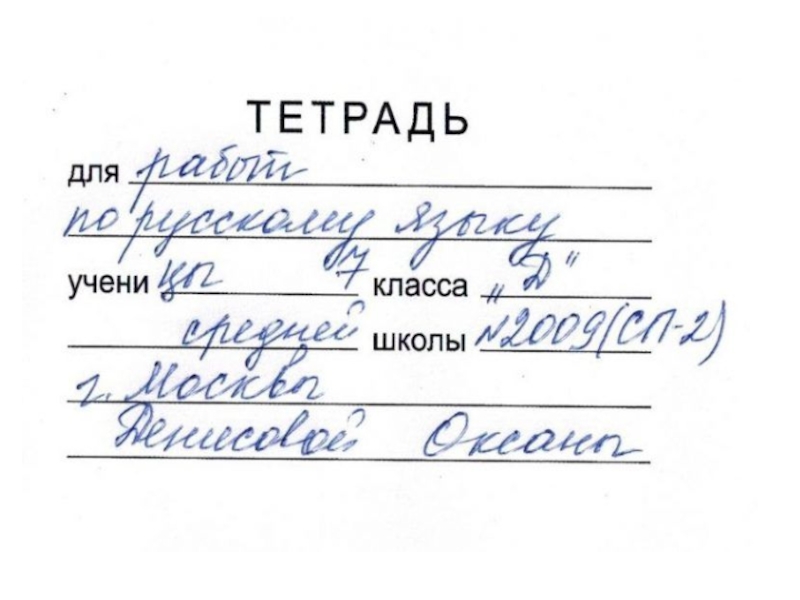 ТЕТРАДЬ
для работ
по русскому языку
учени цы 7 класса „Д“
средней школы №2009(СП-2)
г. Москвы
Денисовой Оксаны